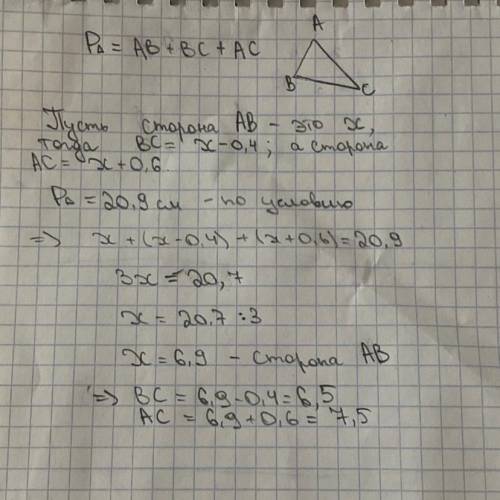 P△ = AB + BC + AC
A
B
C
Пусть сторона AB - это x,
тогда BC = x-0,4; а сторона
AC = x+0,6.
P△ = 20,9 см - по условию
=> x + (x-0,4) + (x+0,6) = 20,9
3x = 20,7
x = 20,7 :3
x = 6,9 - сторона AB
=> BC = 6,9-0,4 = 6,5
AC = 6,9+0,6 = 7,5